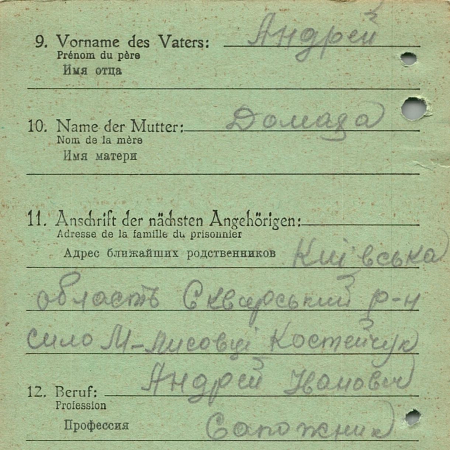 9. Vorname des Vaters: Андрей
Prénom du père
Имя отца
10. Name der Mutter: Домаза
Nom de la mère
Имя матери
11. Anschrift der nächsten Angehörigen:
Adresse de la famille du prisonnier
Адрес ближайших родственников Київська
область Сквирський р-н
сило М-Лисовці Костейчук
Андрей Іванович
12. Beruf:
Profession
Профессия Сапожник